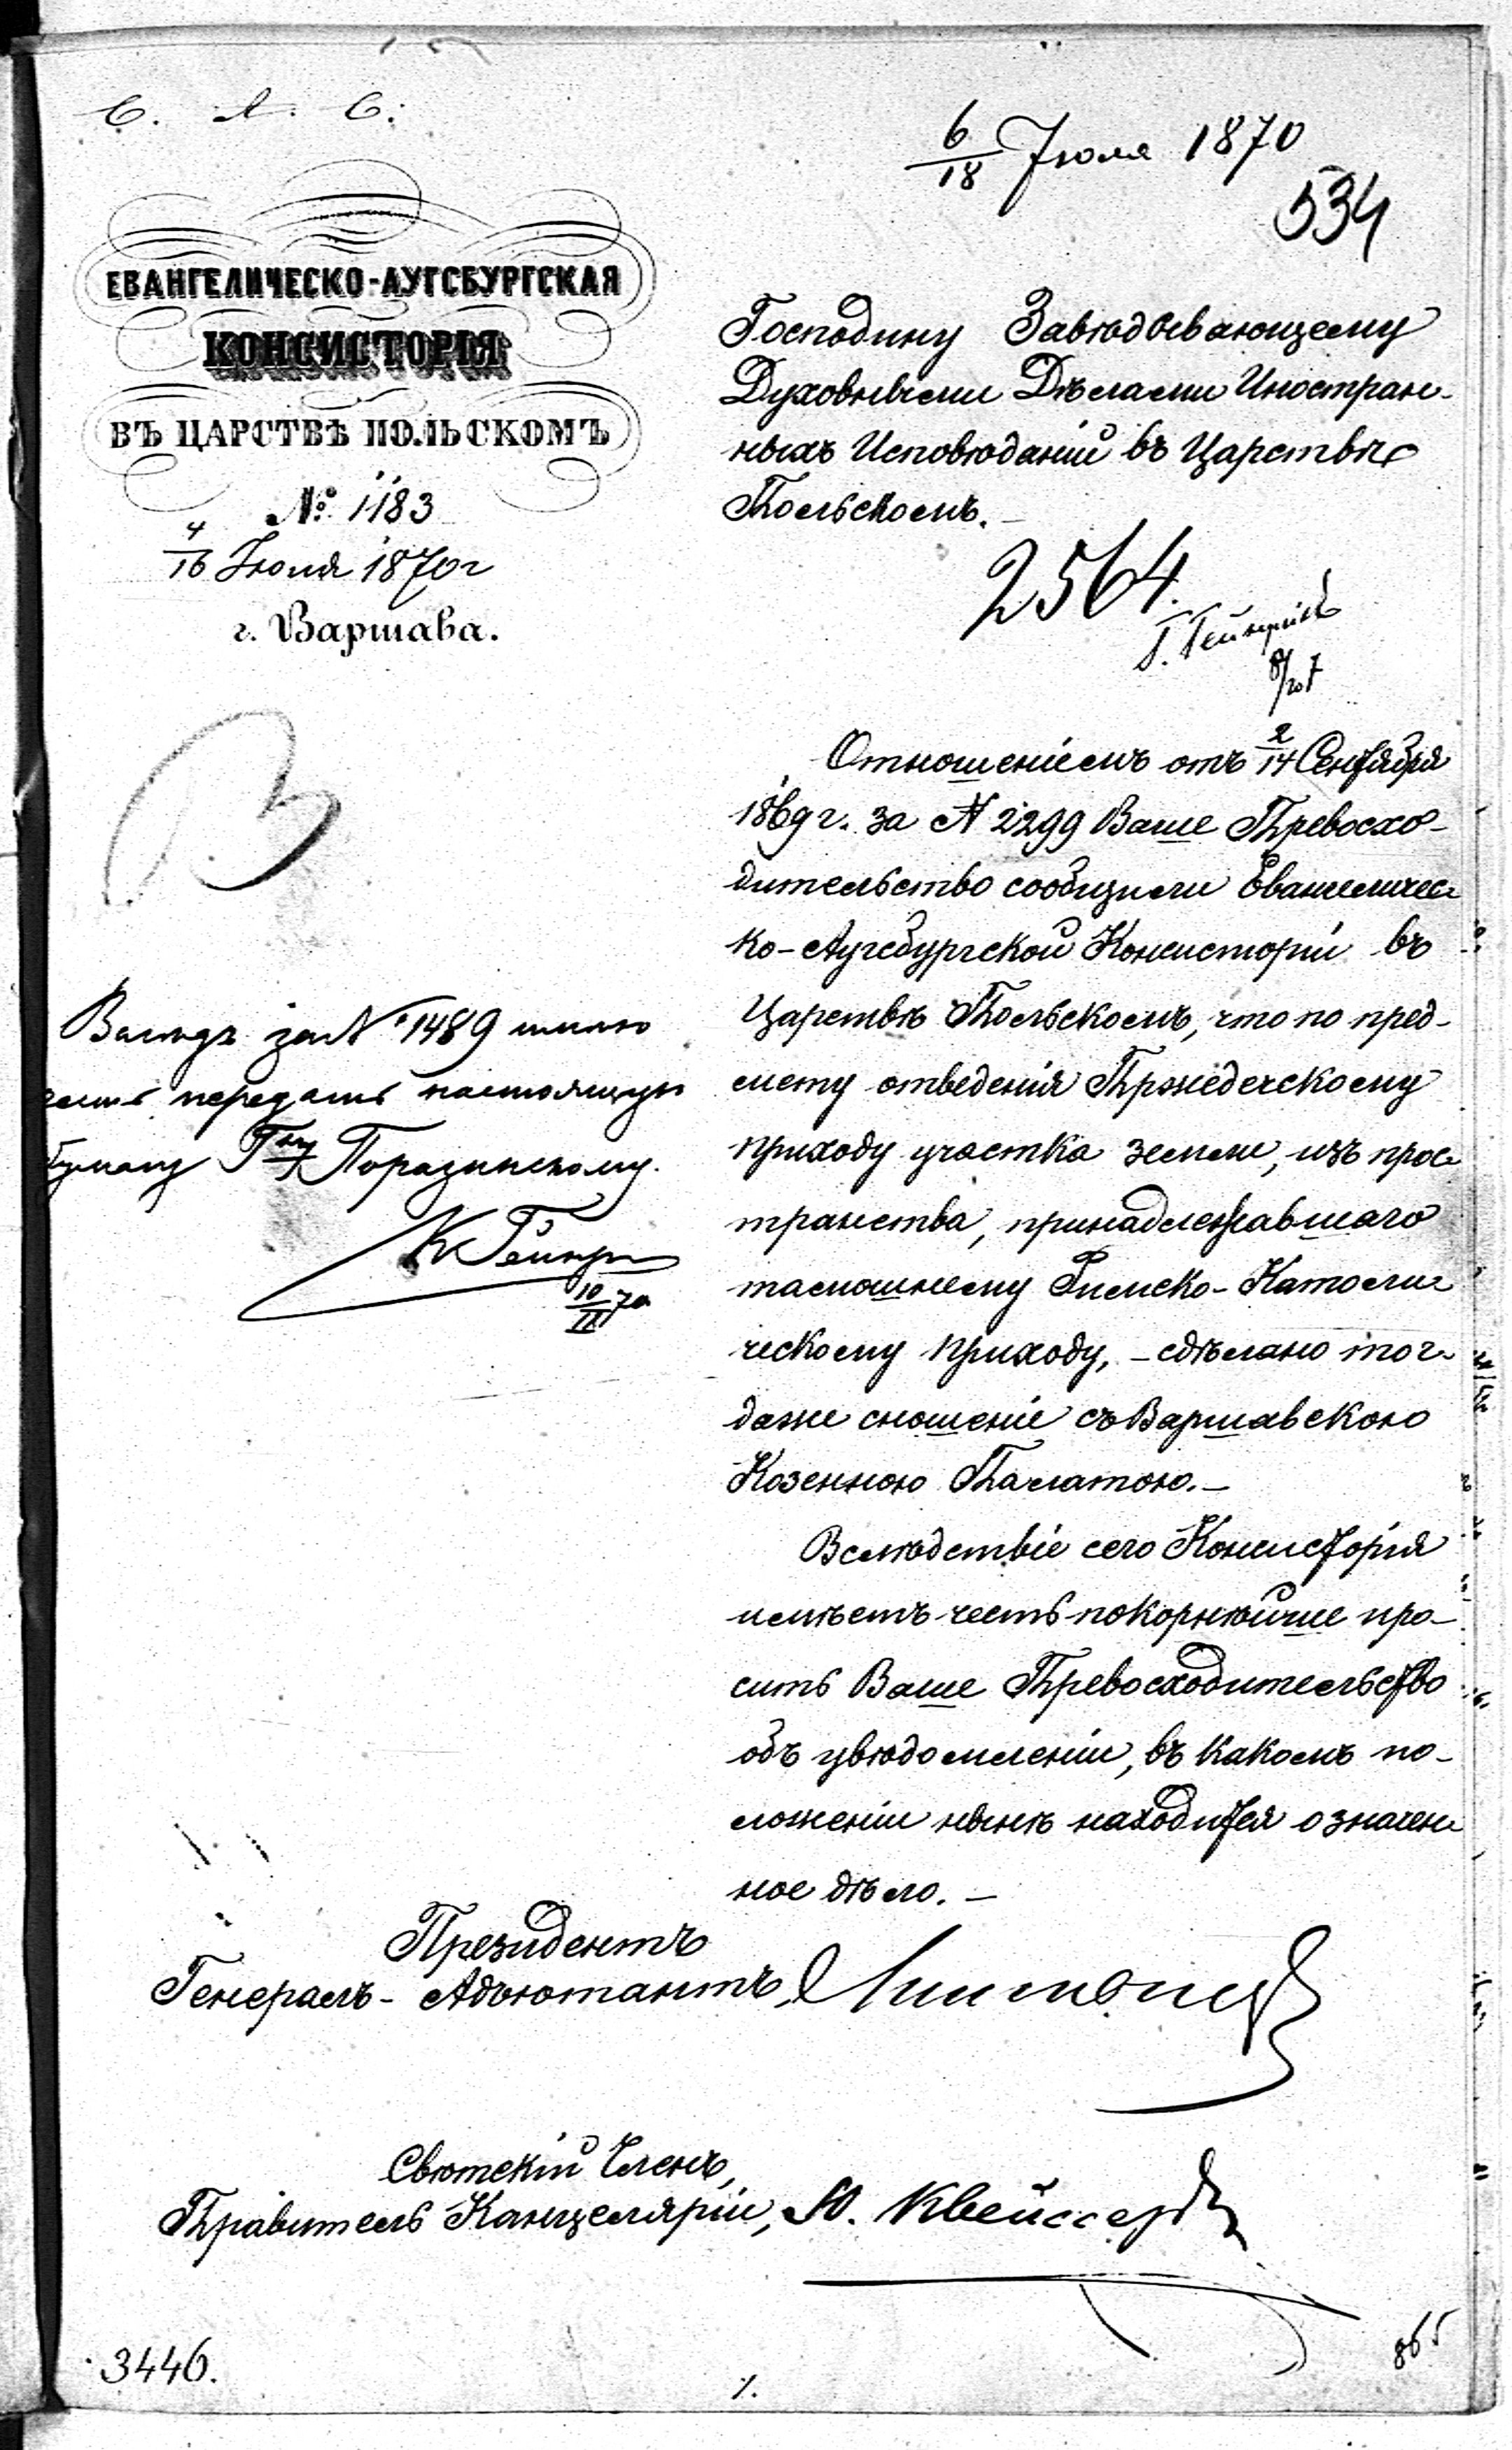 6/18 Іюля 1870
534
ЕВАНГЕЛИЧЕСКО-АУГСБУРГСКАЯ
КОНСИСТОРІЯ
ВЪ ЦАРСТВѢ ПОЛЬСКОМЪ
№ 1183
4/16 Іюля 1870 г
г. Варшава.
Господину Завѣдывающему
Духовными Дѣлами Иностран-
ныхъ Исповѣданій въ Царствѣ
Польскомъ.
2564.
Отношеніемъ отъ 2/14 Сентября
1869 г. за № 2299 Ваше Превосхо-
дительство сообщили Евангеличес-
ко-Аугсбургской Консисторіи въ
Царствѣ Польскомъ, что по пред-
мету отведенія Пржедечскому
приходу участка земли, изъ прос-
транства, принадлежавшаго
тамошнему Римско-Католи-
ческому приходу, - сдѣлано тог-
даже сношеніе съ Варшавскою
Казенною Палатою. -
Вслѣдствіе сего Консисторія
имѣетъ честь покорнѣйше про-
сить Ваше Превосходительство
объ увѣдомленіи, въ какомъ по-
ложеніи нынѣ находится означен-
ное дѣло. -
за № 1489 имѣю
честь передать настоящую
бумагу Гну
10/II 70
Президентъ
Генералъ-Адъютантъ,
Свѣтскій Членъ,
Правитель Канцеляріи, Ю. Квейссеръ
3446.